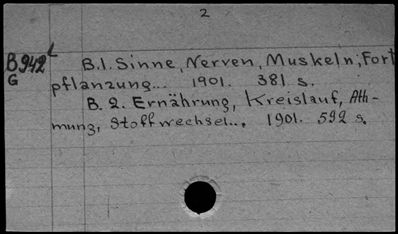 2
B942 L B.1. Sinne, Nerven, Muskeln, Fort
G pflanzung... 1901. 381 s.
B. 2. Ernährung, Kreislauf, Ath-
mung, Stoffwechsel... 1901. 592 s.